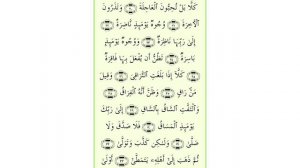 كَلَّا بَلْ تُحِبُّونَ ٱلْعَاجِلَةَ ۝ وَتَذَرُونَ
ٱلْآخِرَةَ ۝ وُجُوهٌ يَوْمَئِذٍ نَّاضِرَةٌ ۝
إِلَىٰ رَبِّهَا نَاظِرَةٌ ۝ وَوُجُوهٌ يَوْمَئِذٍۭ
بَاسِرَةٌ ۝ تَظُنُّ أَن يُفْعَلَ بِهَا فَاقِرَةٌ
۝ كَلَّا إِذَا بَلَغَتِ ٱلتَّرَاقِيَ ۝ وَقِيلَ
مَنْ رَاقٍ ۝ وَظَنَّ أَنَّهُ ٱلْفِرَاقُ ۝
وَٱلْتَفَّتِ ٱلسَّاقُ بِٱلسَّاقِ ۝ إِلَىٰ رَبِّكَ
يَوْمَئِذٍ ٱلْمَسَاقُ ۝ فَلَا صَدَّقَ وَلَا
صَلَّىٰ ۝ وَلَٰكِن كَذَّبَ وَتَوَلَّىٰ ۝
ثُمَّ ذَهَبَ إِلَىٰ أَهْلِهِ يَتَمَطَّىٰ ۝ أَوْلَىٰ